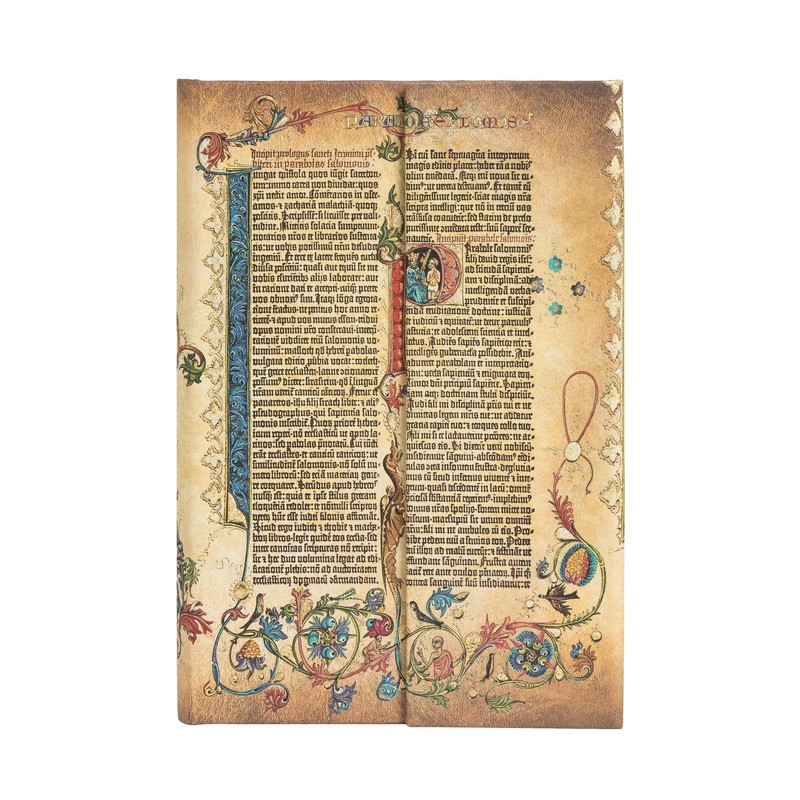 Incipit prologus sancti Jeronimi p̄sbiteri in parabolas salomonis
Iungat epistola quos iungit sacerdotium:
immo carta non diuidat: quos
xp̄i nectit amor. Cōmētarios in osee-
amos-⁊ zachariā malachiā-quoq₃
poscitis. Scripsissē: si licuisset pre valitudine.
Mittitis solacia sumptuum-
notarios nr̄os et librarios sustenta-
tis: ut vobis potissimū nr̄m desudet
ingeniū. Et ecce ex latere frequēs turba
diu̇sa poscētiū: quasi aut equū sit me
vobis esuriētibꝫ alijs laborare: aut
in racione dati et accepti-cuiq₃ preter
vos obnoxiꝰ sim. Itaq₃ lōga egrota-
tione fractus-ne penitus hoc anno reticerē-
⁊ apud vos mutus essem-tridui
opus nomini vr̄o consecraui-interp̄-
tationē videlicet triū salomonis vo-
luminū: masloth qd̄ hebrei pabolas-
vulgata editio ꝓubia vocat: coeleth-
quē grece ecclesiasten-latine ꝯcionatorē
possumꝰ dicere: sirasirim-qd̄ ī linguā
nr̄am vertit̄ canticū cāticoꝝ. Fertur et
panaretos-ihū filij sirach liber: ⁊ aliꝰ
pseudographus-qui sapientia salo-
monis inscribit̄. Quoꝝ priorē hebra-
icum repperi-nō ecclesiasticū ut apud la-
tinos: sed pabolas p̄notatū. Cui iūcti
erāt ecclesiastes-et canticū canticoꝝ: ut
similitudinē salomonis-nō solū nu-
mero librorū: sed etiā materiaꝝ gene-
re coequaret. Secūdus apud hebreos
nusq̄ est: quia et ipse stilus grecam
eloquētiā redolet: et nōnulli scriptoꝝ
veteꝝ hūc esse iudei filonis affirmāt.
Sicud ergo iudith ⁊ thobie ⁊ macha-
beoꝝ libros-legit quidē eos ecclia-sed
inter canonicas scripturas nō recipit:
sic ⁊ hec duo volumina legat ad edi-
ficationē plebis: nō ad auctoritatem
ecclesiasticoꝝ dogmatū ꝯfirmandam.
Si cui sane septuaginta interpretum
magis editio placet: habet eā a nobis
olim emēdatā. Neq₃ em̄ noua sic cu-
dimꝰ: ut vetera destruamꝰ. Et tamē cū
diligentissime legerit-sciat magis nr̄a
scripta intelligi: que nō in terciū vas
trāsfusa coacuerīt: sed statim de prelo
purissime ꝯmendata teste: suū saporē ser-
uauerint. Incipiunt parabole salomonis
Parabole salomonis
filij dauid regis isrl̄:
ad sciendā sapienti-
am ⁊ disciplinā: ad
intelligendā verba
prudentie et suscipi-
endā eruditionē doctrine: iusticiā
et iudiciū ⁊ equitatē: ut detur paruulis
astutia: et adolescenti sciencia et intel-
lectus. Audiēs sapiēs sapiētior erit: ⁊
intelligēs gubernacla possidebit. Ani-
aduertet parabolam et interpretatio-
nem: verba sapientiū ⁊ enigmata eoꝝ.
Timor dn̄i principiū sapiētie. Sapien-
tiam atq₃ doctrinam stulti despiciūt.
Audi fili mi disciplinā pr̄is tui et ne
dimittas legem mr̄is tue: ut addatur
gracia capiti tuo: ⁊ torques collo tuo.
Fili mi si te lactauerint pctōres: ne ac-
quiescas eis. Si dixerīt veni nobiscū-
insidiemur sāguini-abscōdamꝰ tēdi-
culas ꝯtra insontem frustra-degluti-
amus eū sicud infernus viuentē ⁊ inte-
grum-quasi descēdentē in lacū: omnē
p̄ciosā s̄bstanciā reperiemꝰ-implebimꝰ
domus nr̄as spolijs-sortem mitte no-
biscum-marsupiū sit unum omniū
nr̄m: fili mi ne ambules cū eis. Pro-
hibe pedem tuū a semitis eoꝝ. Pedes
em̄ illoꝝ ad malū currūt: ⁊ festināt ut
effundant sāguinem. Frustra autem
iacit̄ rete ante oculos pēnatoꝝ. Ipi̅ q̄
contra sanguinē suū insidiant̄: et